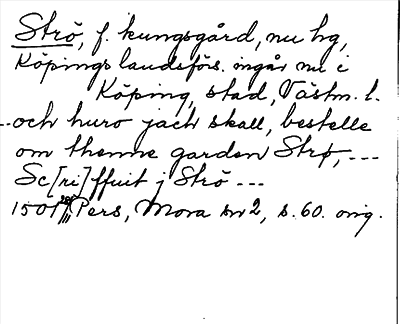 Strö, f. kungsgård, nu hg,
Köpings landsförs. ingår nu i
Köping, stad, Västm. l.
--och huro jach skall, bestelle
om thenne garden Strø, ---
Sc[ri]ffuit j Strö ---
1501 Pers, Mora nr 2, s. 60. orig.